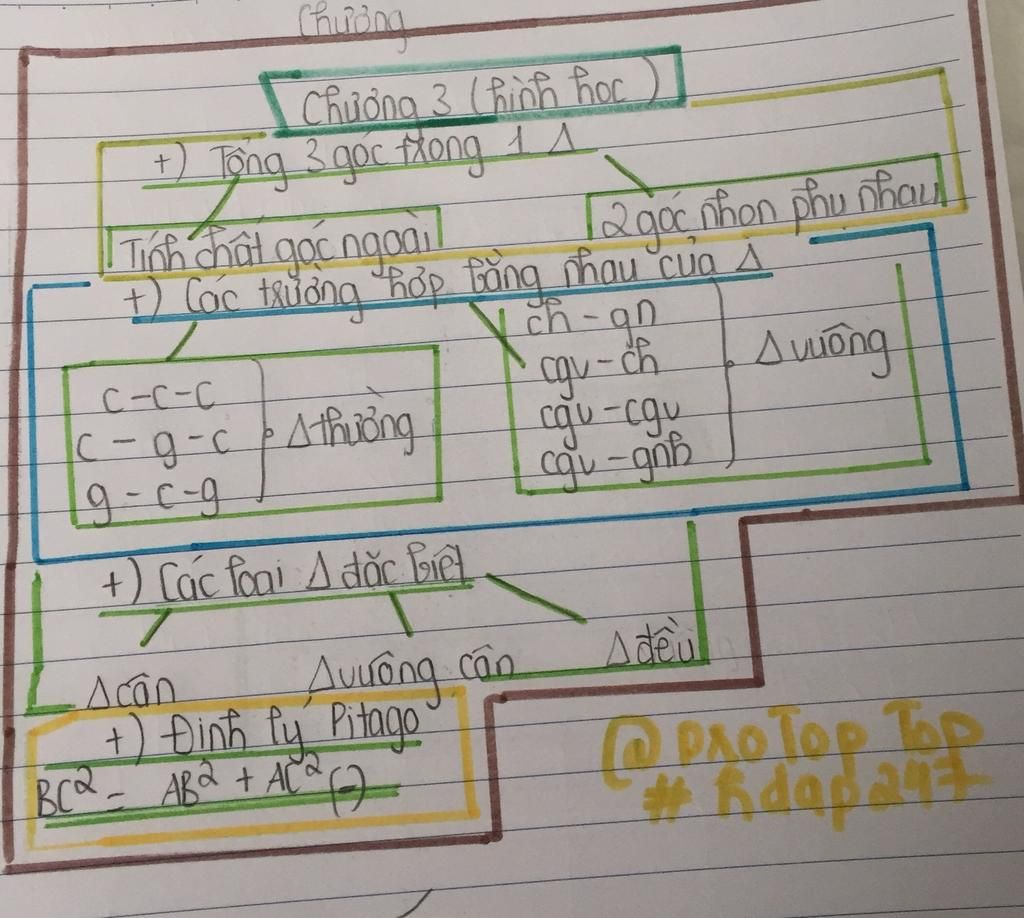 Chương
Chương 3 (hình học)
+) Tổng 3 góc trong 1 Δ
Tính chất góc ngoài
2 góc nhọn phụ nhau
+) Các trường hợp bằng nhau của Δ
c-c-c
c-g-c
g-c-g
Δ thường
ch-gn
cgv-ch
cgv-cgv
cgv-gnh
Δ vuông
+) Các loại Δ đặc biệt
Δ cân
Δ vuông cân
Δ đều
+) Định lý Pitago
BC² = AB² + AC² (-)
@ proTopTop
# hdap247